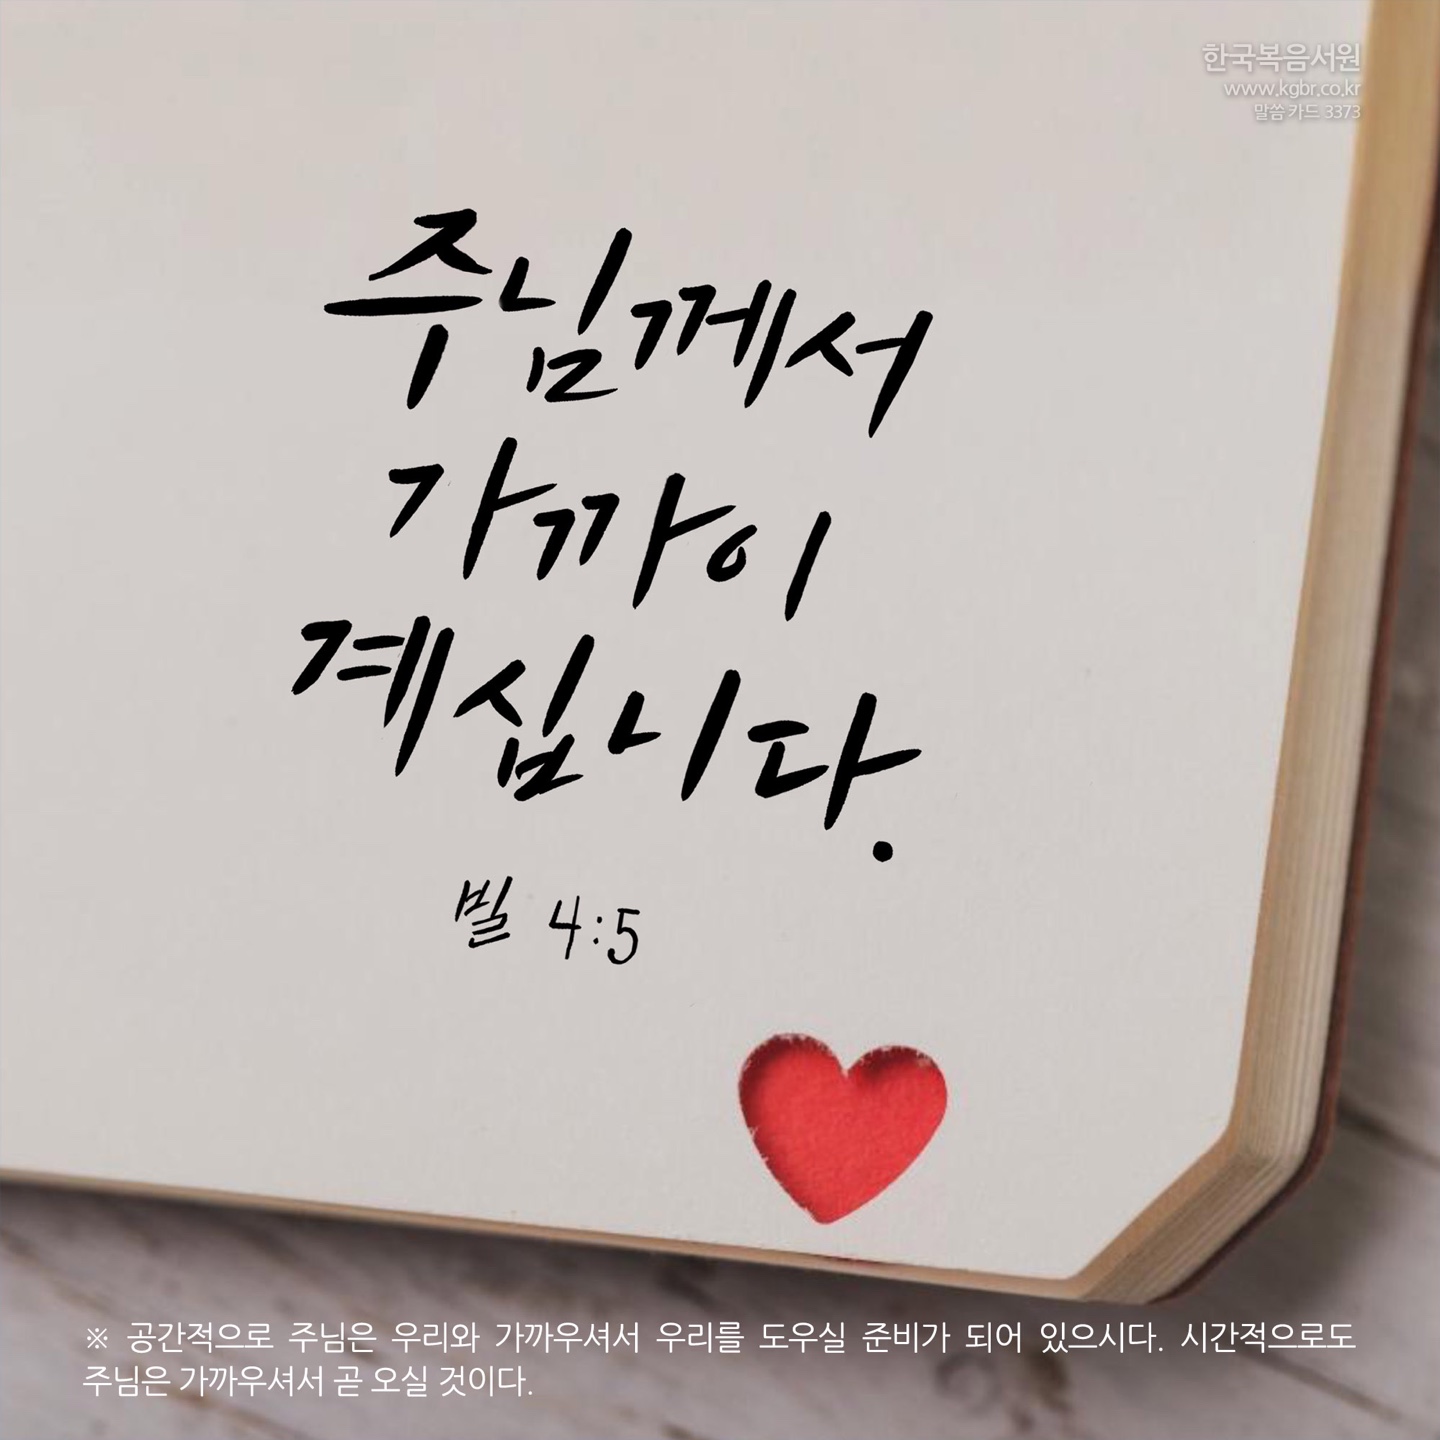 한국복음서원
www.kgbr.co.kr
말씀 카드 3373
주님께서
가까이
계십니다.
빌 4:5
※ 공간적으로 주님은 우리와 가까우셔서 우리를 도우실 준비가 되어 있으시다. 시간적으로도
주님은 가까우셔서 곧 오실 것이다.